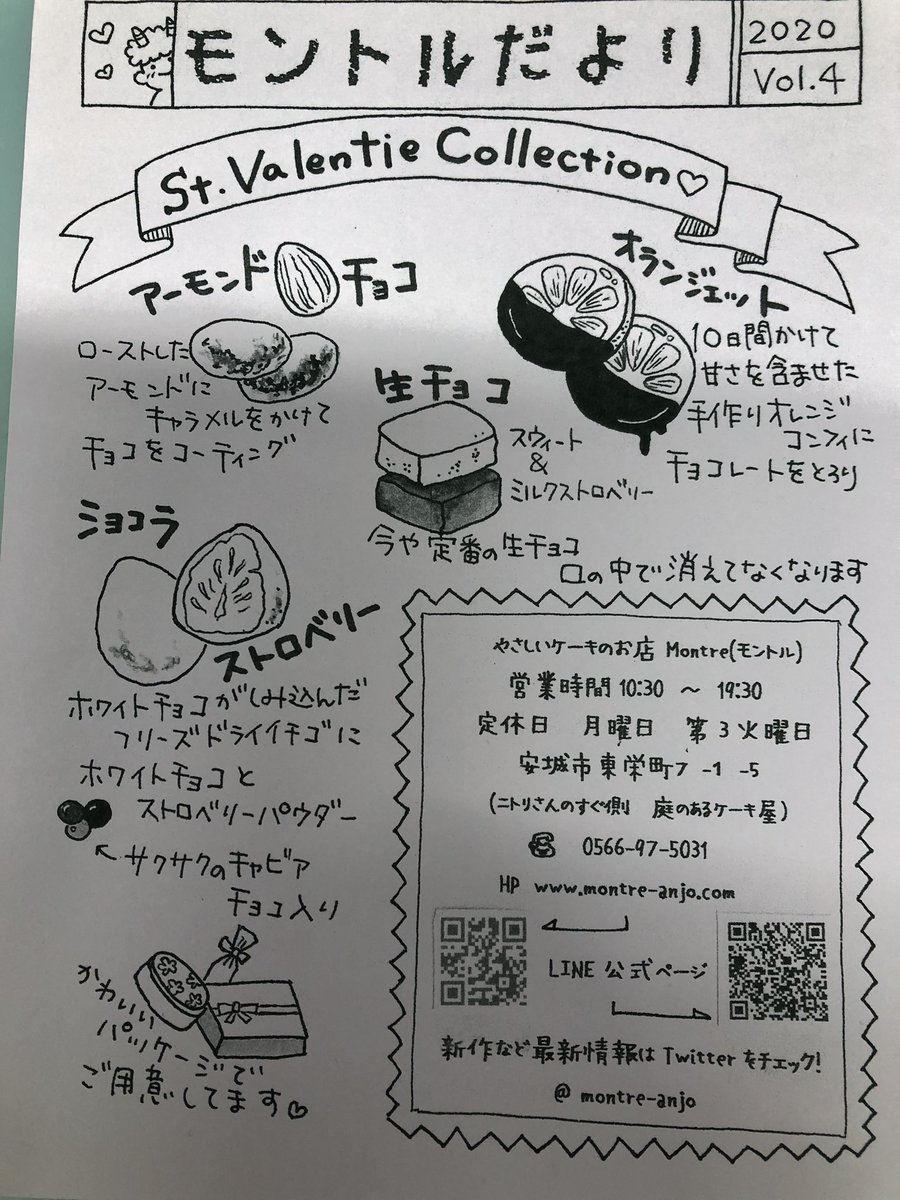 モントルだより
2020
Vol.4
St.Valentie Collection♡
アーモンドチョコ
ローストした
アーモンドに
キャラメルをかけて
チョコをコーティング
オランジェット
10日間かけて
甘さを含ませた
手作りオレンジ
コンフィに
チョコレートをとろり
生チョコ
スウィート
&
ミルクストロベリー
今や定番の生チョコ
口の中で消えてなくなります
ショコラ
ストロベリー
ホワイトチョコがしみ込んだ
フリーズドライイチゴに
ホワイトチョコと
ストロベリーパウダー
←サクサクのキャビア
チョコ入り
かわいい
パッケージで
ご用意してます♡
やさしいケーキのお店 Montre(モントル)
営業時間 10:30 〜 19:30
定休日 月曜日 第3火曜日
安城市東栄町7-1-5
(ニトリさんのすぐ側 庭のあるケーキ屋)
☎ 0566-97-5031
HP www.montre-anjo.com
LINE 公式ページ
新作など最新情報は Twitter をチェック!
@ montre-anjo